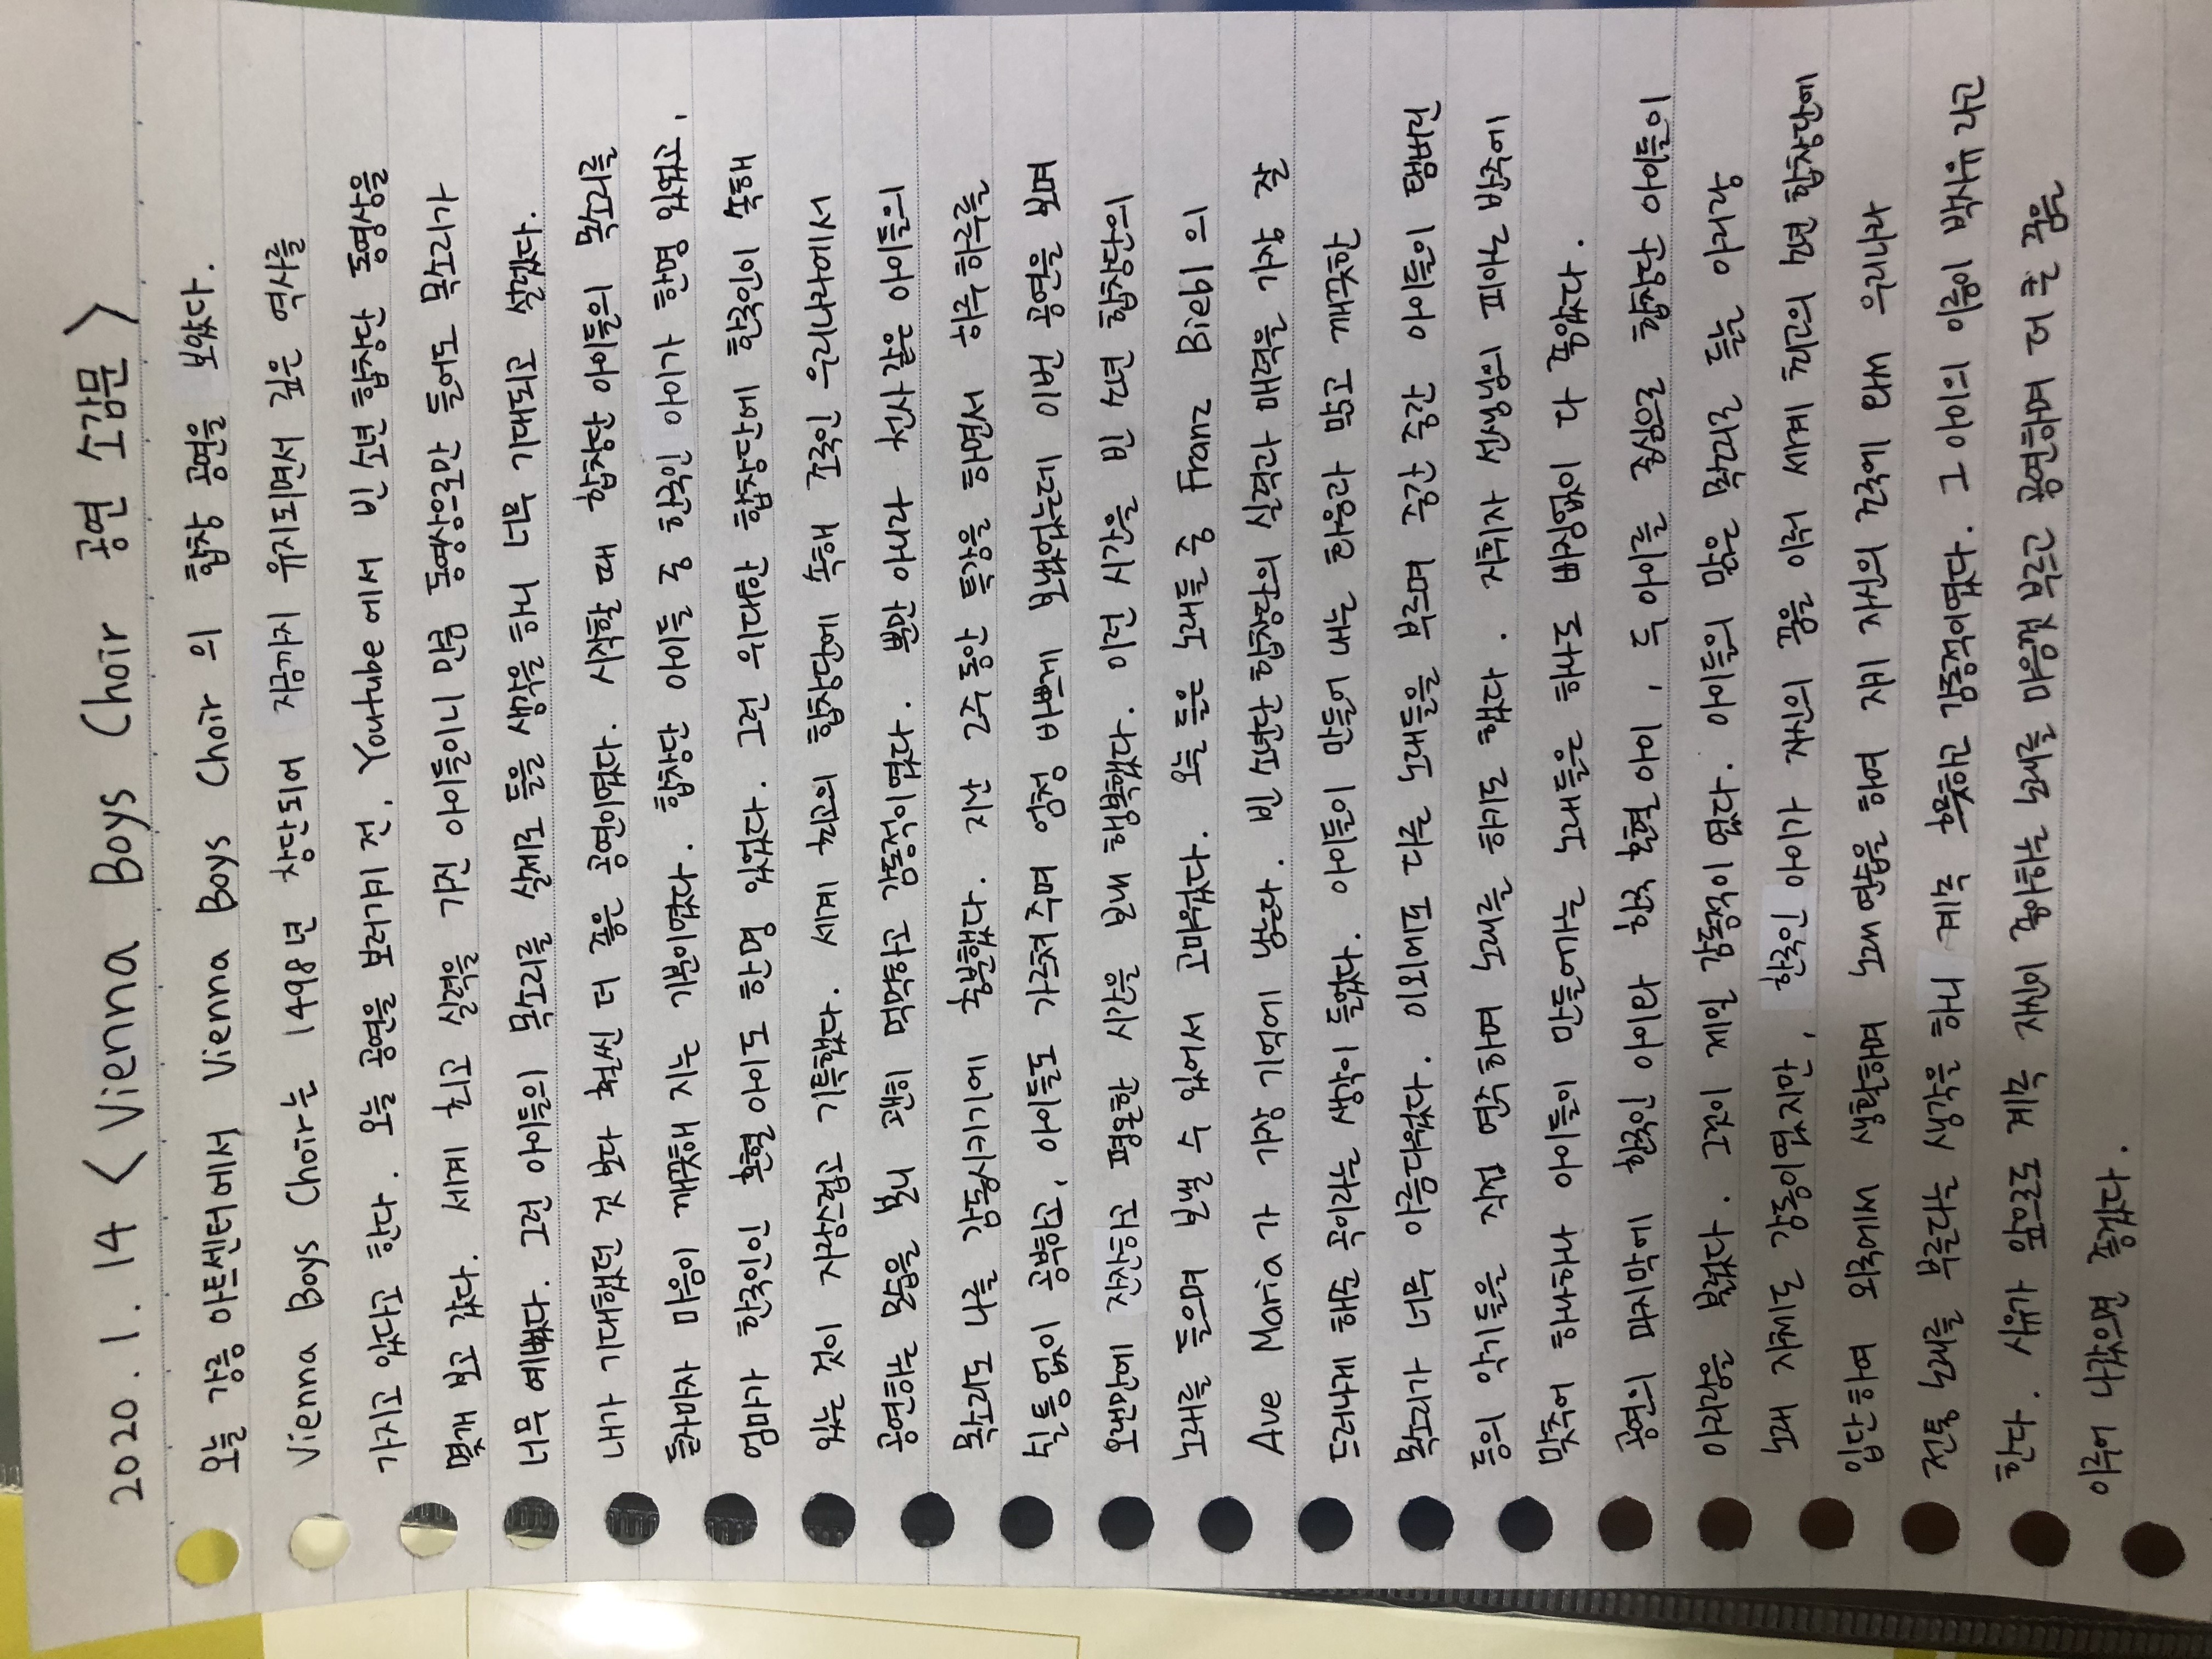 2020. 1. 14 < Vienna Boys Choir 공연 소감문 >
오늘 강릉 아트센터에서 Vienna Boys Choir 의 합창 공연을 보았다.
Vienna Boys Choir는 1498년 창단되어 지금까지 유지되면서 깊은 역사를
가지고 있다고 한다. 오늘 공연을 보러가기 전, Youtube에서 빈 소년 합창단 동영상을
몇개 보고 갔다. 세계 최고 실력을 가진 아이들이니 만큼 동영상으로만 들어도 목소리가
너무 예뻤다. 그런 아이들의 목소리를 실제로 들을 생각을 하니 너무 기대되고 설렜다.
내가 기대했던 것 보다 훨씬 더 좋은 공연이었다. 시작할 때 합창단 아이들의 목소리를
들을때마다 마음이 깨끗해 지는 기분이었다. 합창단 아이들 중 한국인 아이가 한명 있었고,
엄마가 한국인인 혼혈 아이도 한명 있었다. 그런 위대한 합창단에 한국인이 속해
있는 것이 자랑스럽고 기특했다. 세계 최고의 합창단에 속해 온국민 우리나라에서
공연하는 모습을 보니 괜히 먹먹하고 감동적이었다. 많아봐야 나와 4살 같은 아이들의
목소리가 나를 감동시키기에 충분했다. 지난 2주동안 특강을 들으면서 하루하루를
쉴틈없이 공부하고, 아이들도 가르쳐주며 엄청 바쁘게 보냈었는데 이번 공연을 보며
오랜만에 잔잔하고 평화로운 시간을 보내 행복했었다. 이런 시간을 빈 소년 합창단의
노래를 들으며 보낼 수 있어서 고마웠다. 특히 들은 노래들 중 Franz Biebl 의
Ave Maria 가 가장 기억에 남는다. 빈 소년 합창단의 실력과 매력을 가장 잘
드러나게 해준 곡이라는 생각이 들었다. 아이들이 넘들며 내는 화음과 높고 깨끗한
목소리가 너무 아름다웠다. 이외에도 다른 노래들을 부르며 중간 중간 아이들이 탬버린
등의 악기들을 직접 연주하며 노래를 하기도 했다. 지휘자 선생님의 피아노 반주에
맞추어 하나하나 아이들이 만들어내는 노래들은 하나도 빠짐없이 다 좋았다.
공연의 마지막에 한국인 아이와 한국 혼혈 아이, 두 아이를 중심으로 합창단 아이들이
아리랑을 불렀다. 그것이 제일 감동적이었다. 아이들의 맑은 목소리로 듣는 아리랑
노래 자체로도 감동이었지만, 한국인 아이가 자신의 꿈을 이뤄 세계 최고의 소년 합창단에
입단하여 외국에서 생활하며 노래 연습을 하며 제 자신의 국악이 배운 우리나라
전통 노래를 부른다는 생각을 하니 계속 뭉클하고 감동적이었다. 그 아이의 이름이 박시유 라고
한다. 시유가 앞으로도 계속 자신이 좋아하는 노래를 마음껏 부르고 공연하며 더 큰 꿈을
이루어 나갔으면 좋겠다.